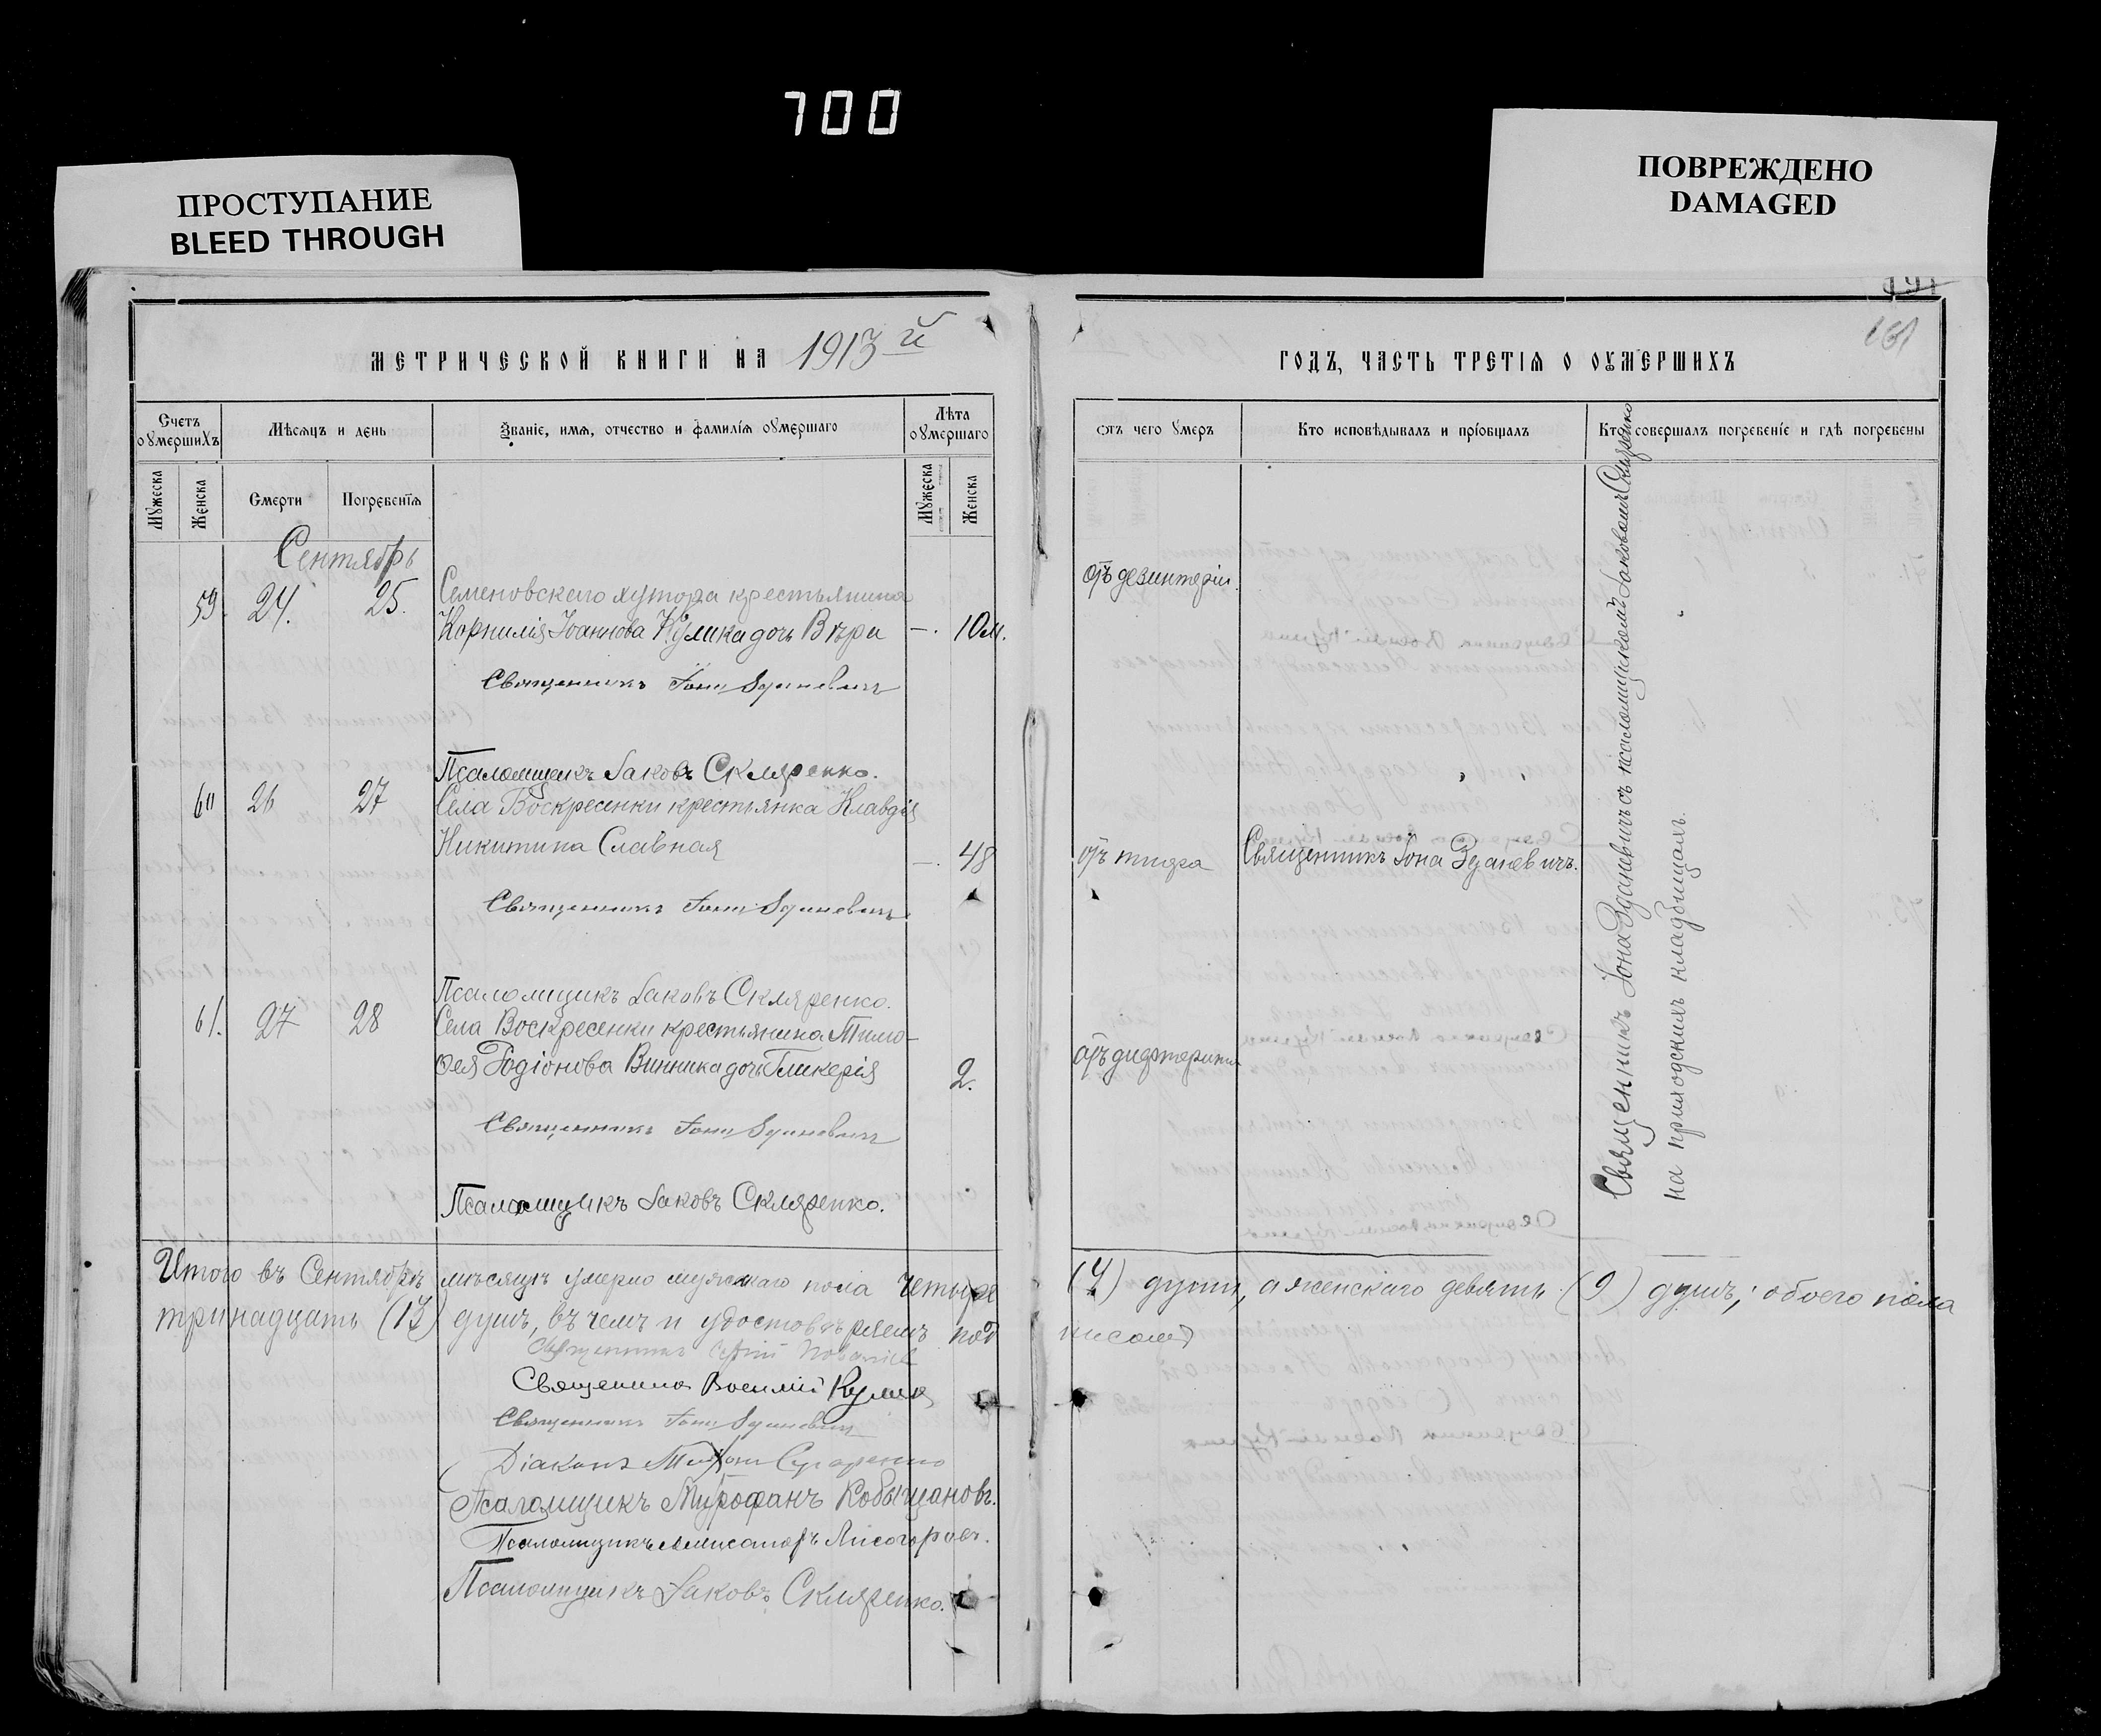 700
ПРОСТУПАНИЕ
BLEED THROUGH
ПОВРЕЖДЕНО
DAMAGED
МЕТРИЧЕСКОЙ КНИГИ НА 1913й
Счетъ оумершихъ
Мѣсяцъ и день
Званіе, имя, отчество и фамилія оумершаго
Лѣта оумершаго
Мужеска
Женска
Смерти
Погребенія
Мужеска
Женска
Сентябрь
59. 24. 25. Семеновскаго хутора крестьянина
Корнилія Іоаннова Кулика дочь Вѣра —. 10 м.
Священникъ Іона Зданевичъ
Псаломщикъ Іаковъ Скляренко.
60 26 27 Села Воскресенки крестьянка Клавдія
Никитина Славная —. 48
Священникъ Іона Зданевичъ
Псаломщикъ Іаковъ Скляренко.
61. 27 28 Села Воскресенки крестьянина Тимо-
ѳея Родіонова Винника дочь Гликерія 2.
Священникъ Іона Зданевичъ
Псаломщикъ Іаковъ Скляренко.
Итого въ Сентябрѣ мѣсяцѣ умерло мужскаго пола четыре
тринадцать (13) душъ, въ чемъ и удостовѣряемъ под
Священникъ
Священникъ Василій Кулик
Священникъ Іона Зданевичъ
Діаконъ
Псаломщикъ Митрофанъ Кобыщановъ.
Псаломщикъ Александръ Лисогоровъ.
Псаломщикъ Іаковъ Скляренко.
161
ГОДЪ, ЧАСТЬ ТРЕТІЯ О ОУМЕРШИХЪ
Отъ чего умеръ
Кто исповѣдывалъ и пріобщалъ
Кто совершалъ погребеніе и гдѣ погребены
отъ дезинтеріи.
отъ тифа Священникъ Іона Зданевичъ.
отъ дифтерита
Священникъ Іона Зданевичъ съ псаломщикомъ Іаковомъ Скляренко
на приходскихъ кладбищахъ.
(4) души, а женскаго девять (9) душъ; обоего пола
писомъ